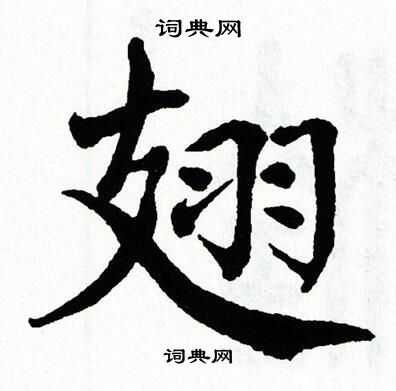 词典网
翅
词典网